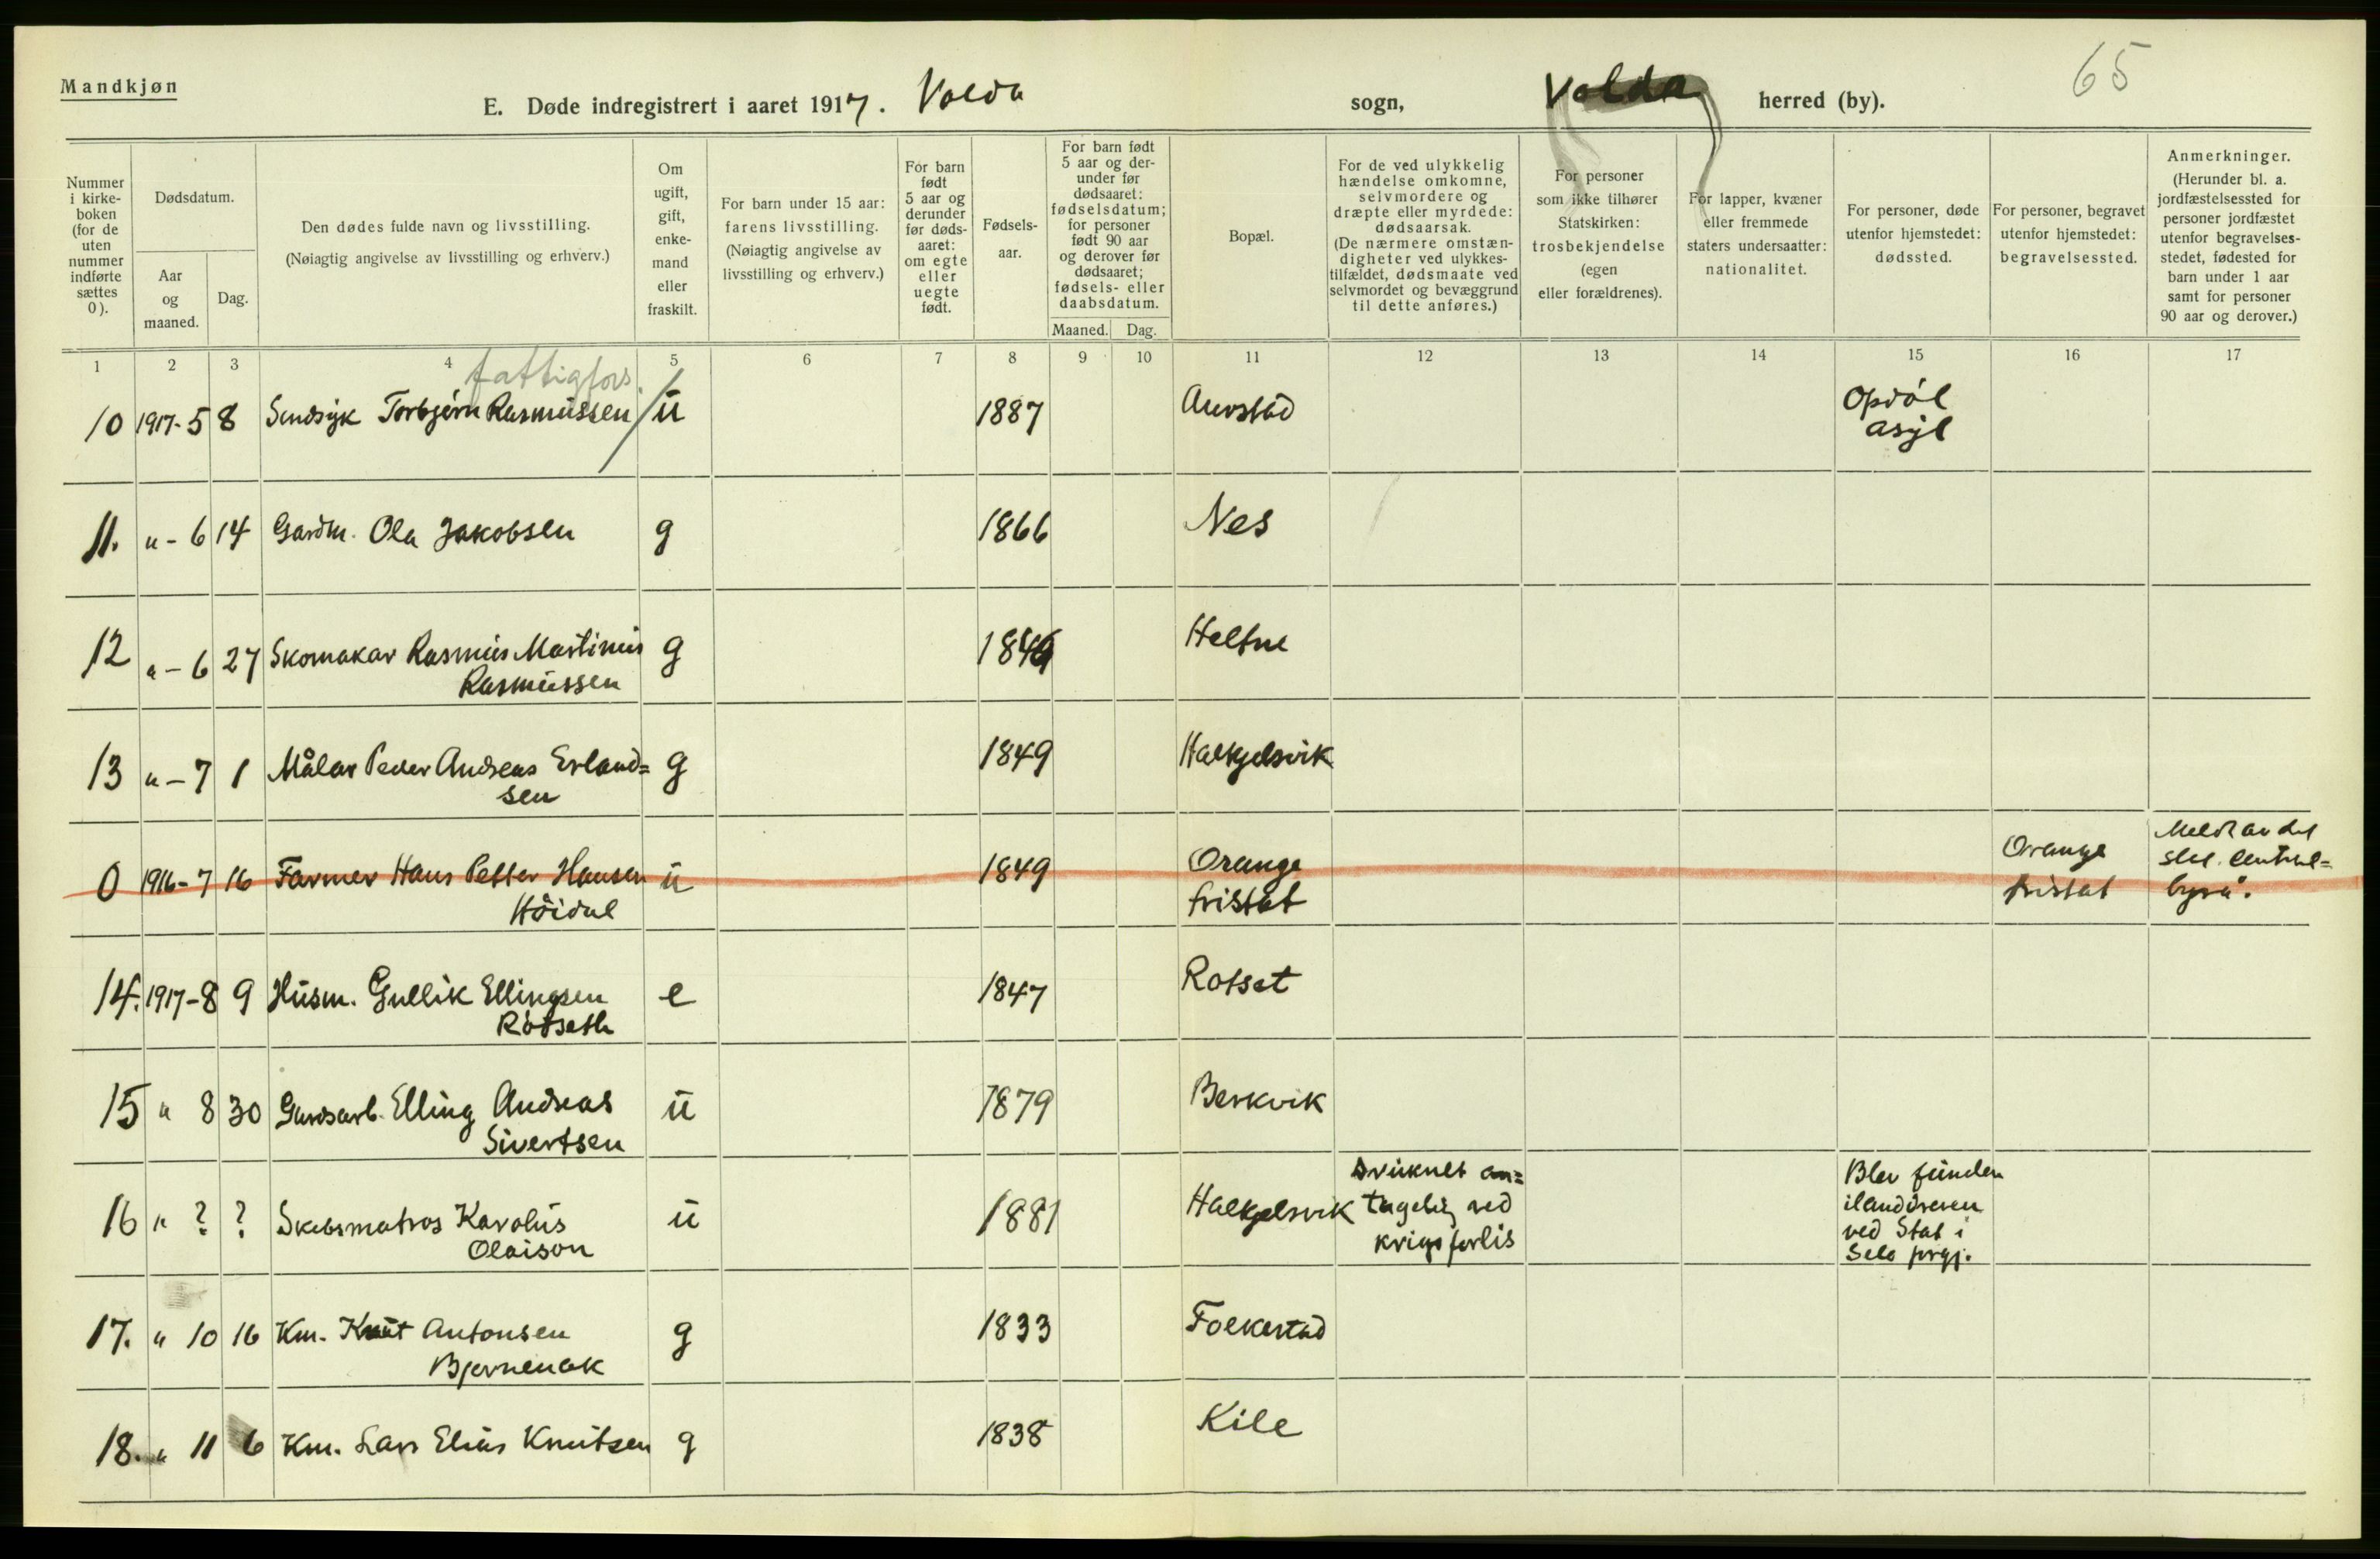 Mandkjøn
E. Døde indregistrert i aaret 1917. Volda sogn, Volda herred (by). 65
Nummer i kirke-boken (for de uten nummer indførte sættes 0).
Dødsdatum.
Aar og maaned.
Dag.
Den dødes fulde navn og livsstilling.
(Nøiagtig angivelse av livsstilling og erhverv.)
Om ugift, gift, enke-mand eller fraskilt.
For barn under 15 aar: farens livsstilling.
(Nøiagtig angivelse av livsstilling og erhverv.)
For barn født 5 aar og derunder før døds-aaret: om egte eller uegte født.
Fødsels-aar.
For barn født 5 aar og der-under før dødsaaret: fødselsdatum; for personer født 90 aar og derover før dødsaaret; fødsels- eller daabsdatum.
Maaned. Dag.
Bopæl.
For de ved ulykkelig hændelse omkomne, selvmordere og dræpte eller myrdede: dødsaarsak.
(De nærmere omstæn-digheter ved ulykkes-tilfældet, dødsmaate ved selvmordet og bevæggrund til dette anføres.)
For personer som ikke tilhører Statskirken: trosbekjendelse (egen eller forældrenes).
For lapper, kvæner eller fremmede staters undersaatter: nationalitet.
For personer, døde utenfor hjemstedet: dødssted.
For personer, begravet utenfor hjemstedet: begravelsessted.
Anmerkninger.
(Herunder bl. a. jordfæstelsessted for personer jordfæstet utenfor begravelses-stedet, fødested for barn under 1 aar samt for personer 90 aar og derover.)
1 2 3 4 5 6 7 8 9 10 11 12 13 14 15 16 17
fattigfors.
10 1917-5 8 Sindsyk Torbjørn Rasmussen u 1887 Aurstad Opdøl
asyl
11. " - 6 14 Gardm. Ola Jakobsen g 1866 Nes
12 " - 6 27 Skomakar Rasmus Martinus g Heltne
Rasmussen
13 " - 7 1 Målar Peder Andreas Erland= g 1849 Halkjelsvik
sen
0 1916-7 16 Farmer Hans Petter Hansen u 1849 Orange Orange Meldt av det
Høidal fristat fristat stat. Central=
byrå.
14. 1917-8 9 Husm. Gullik Ellingsen e 1847 Rotset
Rotseth
15 " 8 30 Gardsarb. Elling Andreas u 1879 Berkvik
Sivertsen
16 " ? ? Skibsmatros Karolus u 1881 Halkjelsvik druknet an= Blev funden
Olaison tagelig ved ilanddreven
krigsforlis ved Stat i
Selo prgj.
17. " 10 16 Km. Knut Antonsen g 1833 Folkestad
Bjørnenak
18. " 11 6 Km. Lars Elias Knutsen g 1838 Kile